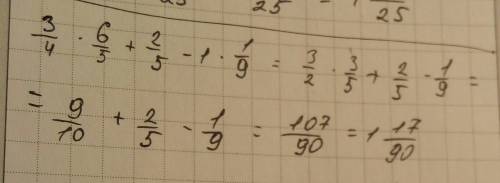 25 25 25
3/4 · 6/5 + 2/5 - 1 · 1/9 = 3/2 · 3/5 + 2/5 - 1/9 =
= 9/10 + 2/5 - 1/9 = 107/90 = 1 17/90